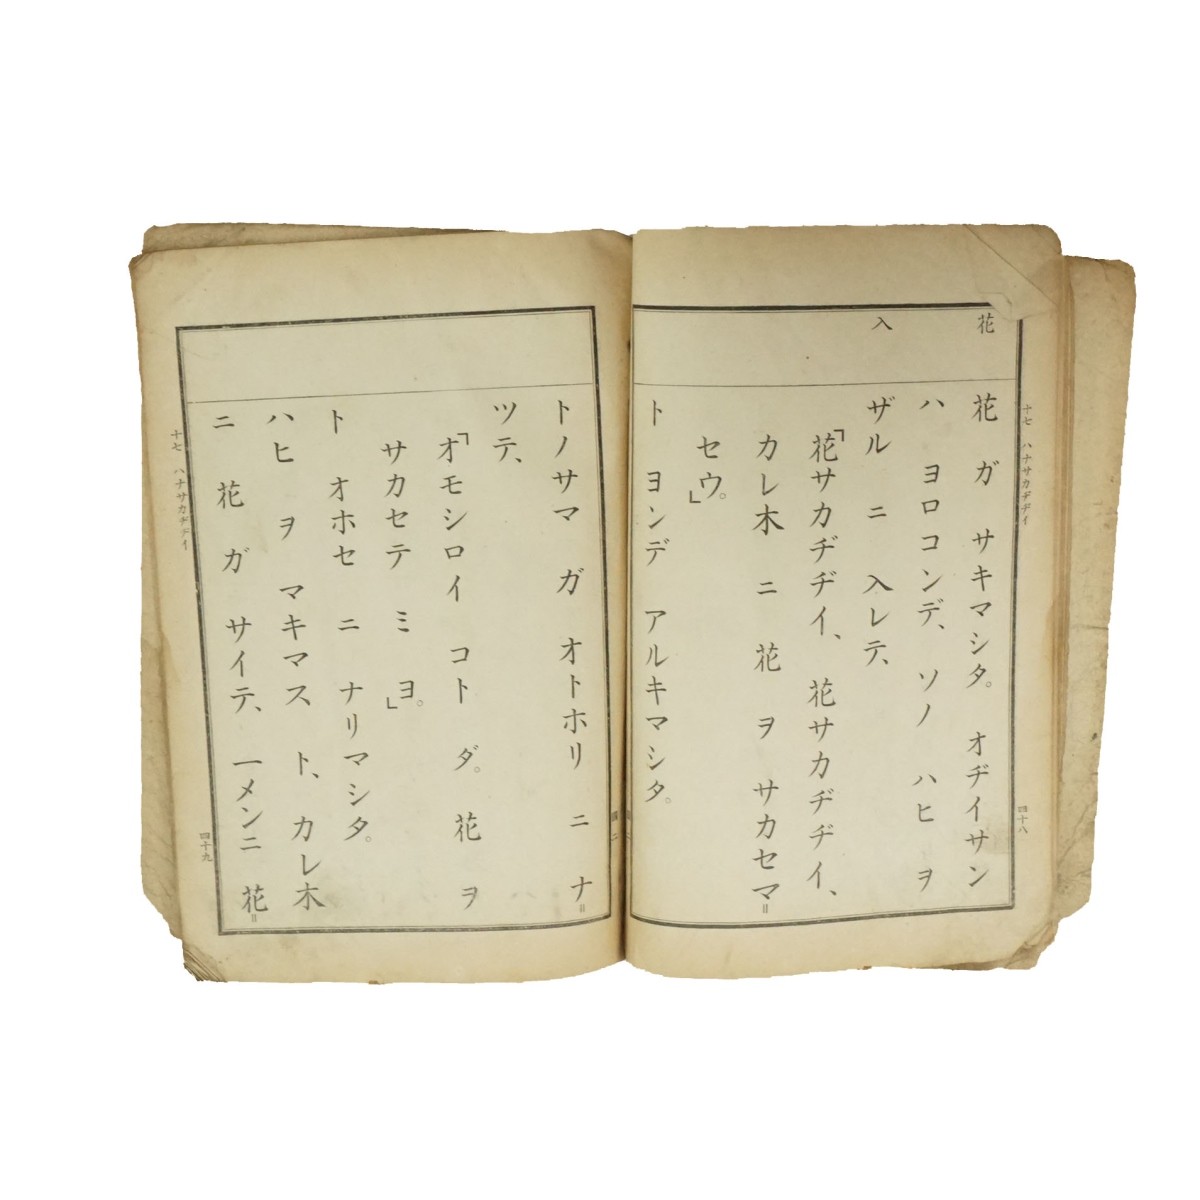 花
入
花ガ サキマシタ。オヂイサン
ハ ヨロコンデ、ソノ ハヒヲ
ザルニ 入レテ、
「花サカヂヂイ、花サカヂヂイ、
カレ木ニ 花ヲ サカセマ=
セウ。」
ト ヨンデ アルキマシタ。
十七 ハナサカヂヂイ
四十八
トノサマガ オトホリニ ナ=
ツテ、
「オモシロイ コトダ。花ヲ
サカセテ ミヨ。」
ト オホセニ ナリマシタ。
ハヒヲ マキマスト、カレ木
ニ 花ガ サイテ、一メンニ 花=
十七 ハナサカヂヂイ
四十九